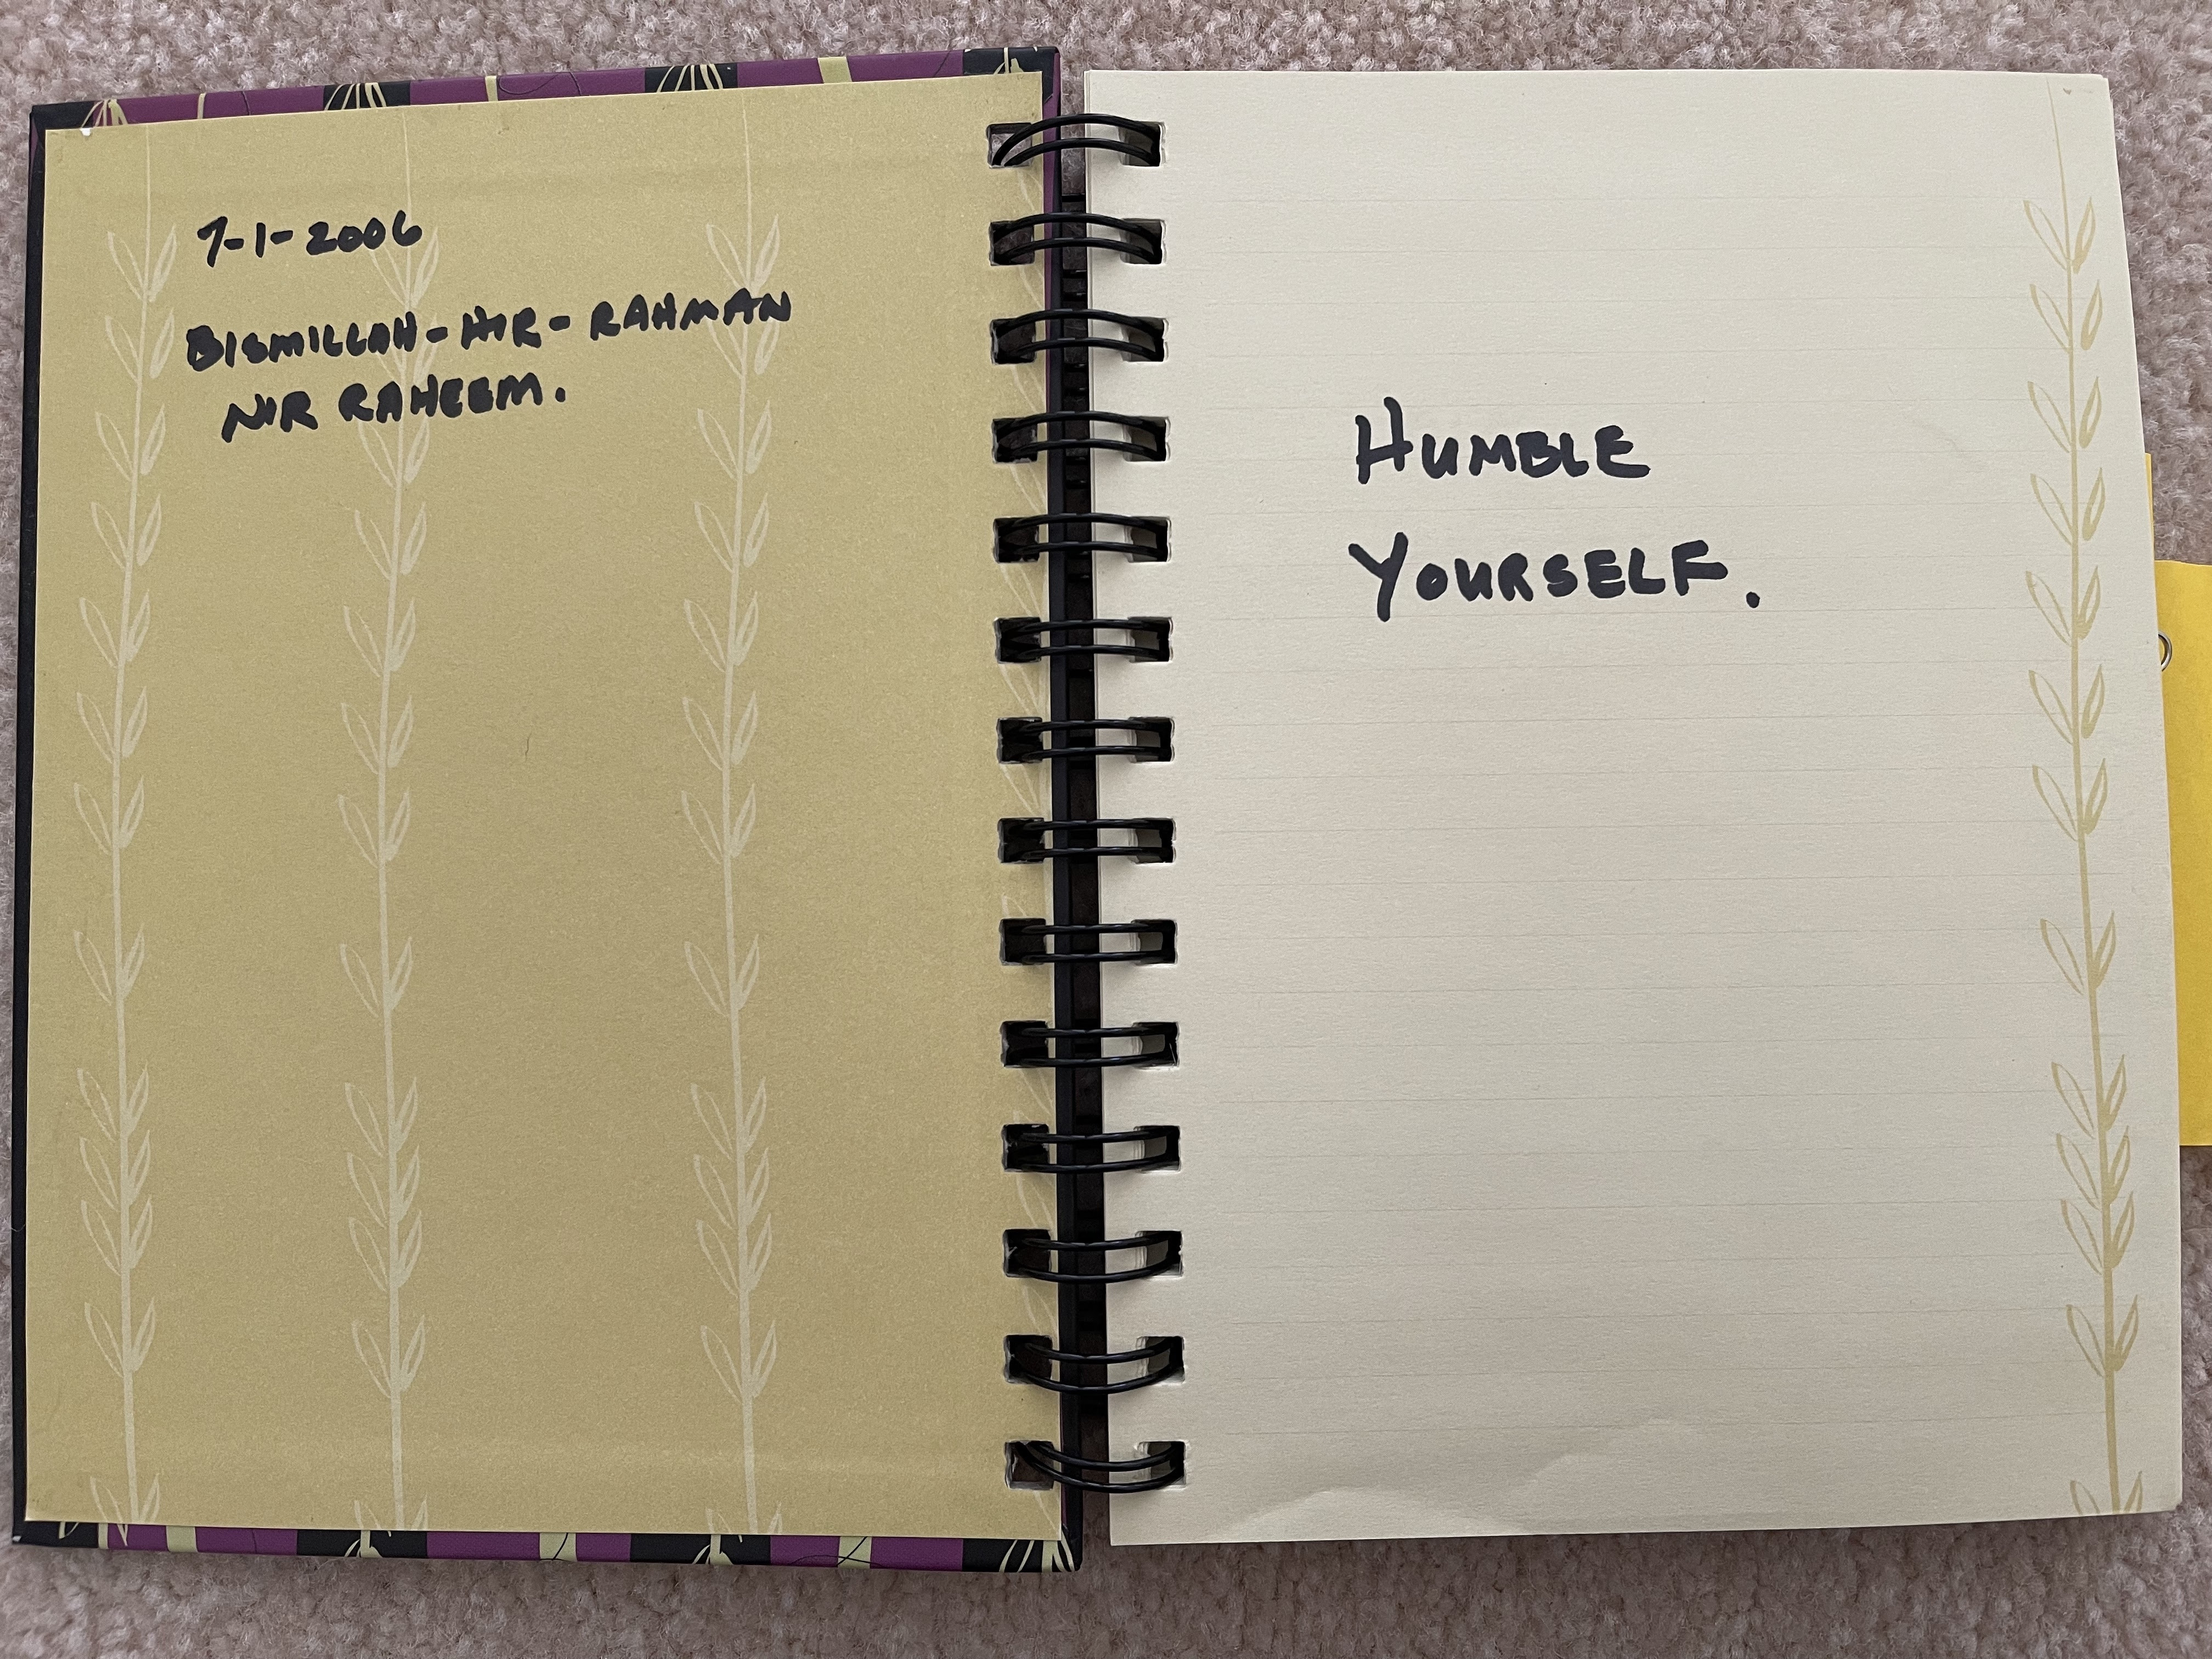 7-1-2006
BISMILLAH-HIR-RAHMAN
NIR RAHEEM.
HUMBLE
YOURSELF.